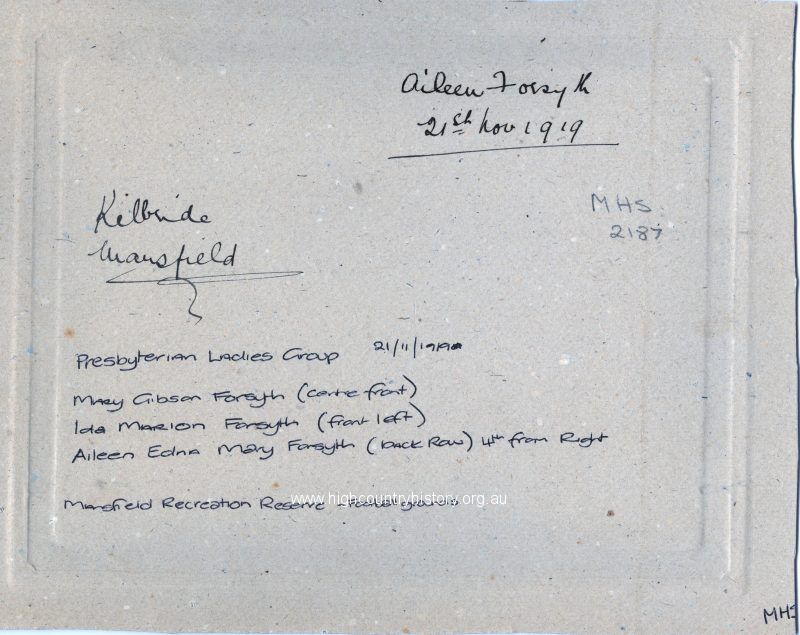 Aileen Forsyth
21st Nov 1919
Kilbride
Mansfield
MHS
2187
Presbyterian Ladies Group 21/11/1919
Mary Gibson Forsyth (centre front)
Ida Marion Forsyth (front left)
Aileen Edna Mary Forsyth (back Row) 4th from Right
Mansfield Recreation Reserve
www.highcountryhistory.org.au
MHS